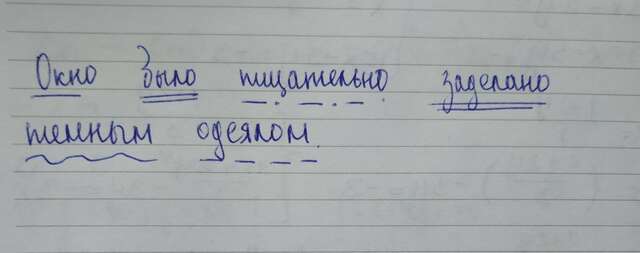 Окно было тщательно заделано
темным одеялом.